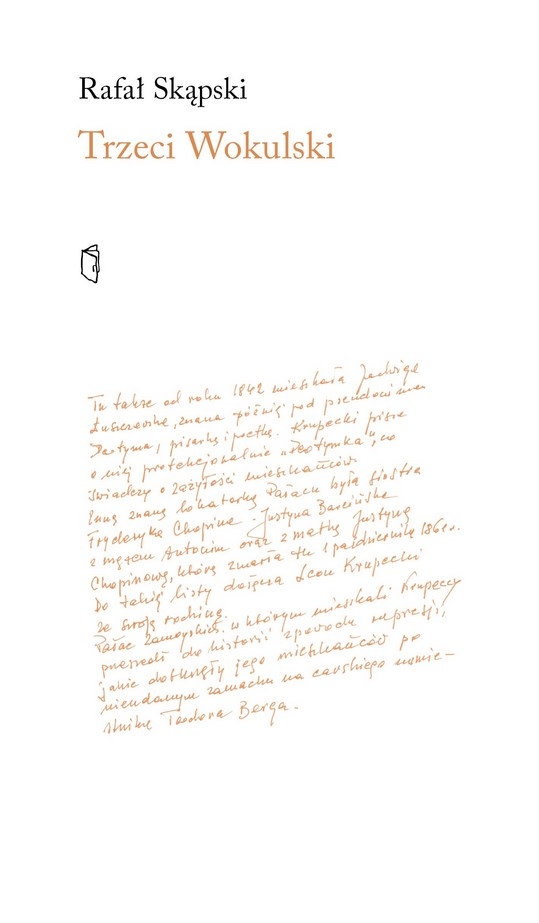 Rafał Skąpski
Trzeci Wokulski
Tu także od roku 1842 mieszkała Jadwiga
Łuszczewska, znana później pod pseudonimem
Deotyma, pisarka i poetka. Krupecki pisze
o niej protekcjonalnie „Deotymka”, co
świadczy o zażyłości mieszkańców.
Inną znaną lokatorką Pałacu była siostra
Fryderyka Chopina Justyna Barcińska
z mężem Antonim oraz z matką Justyną
Chopinową, która zmarła tu 1 października 1861 r.
Do takiej listy dołącza Leon Krupecki
ze swoją rodziną.
Pałac Zamoyskich w którym mieszkali Krupeccy
przeszedł do historii z powodu represji,
jakie dotknęły jego mieszkańców po
nieudanym zamachu na carskiego namie-
stnika Teodora Berga.